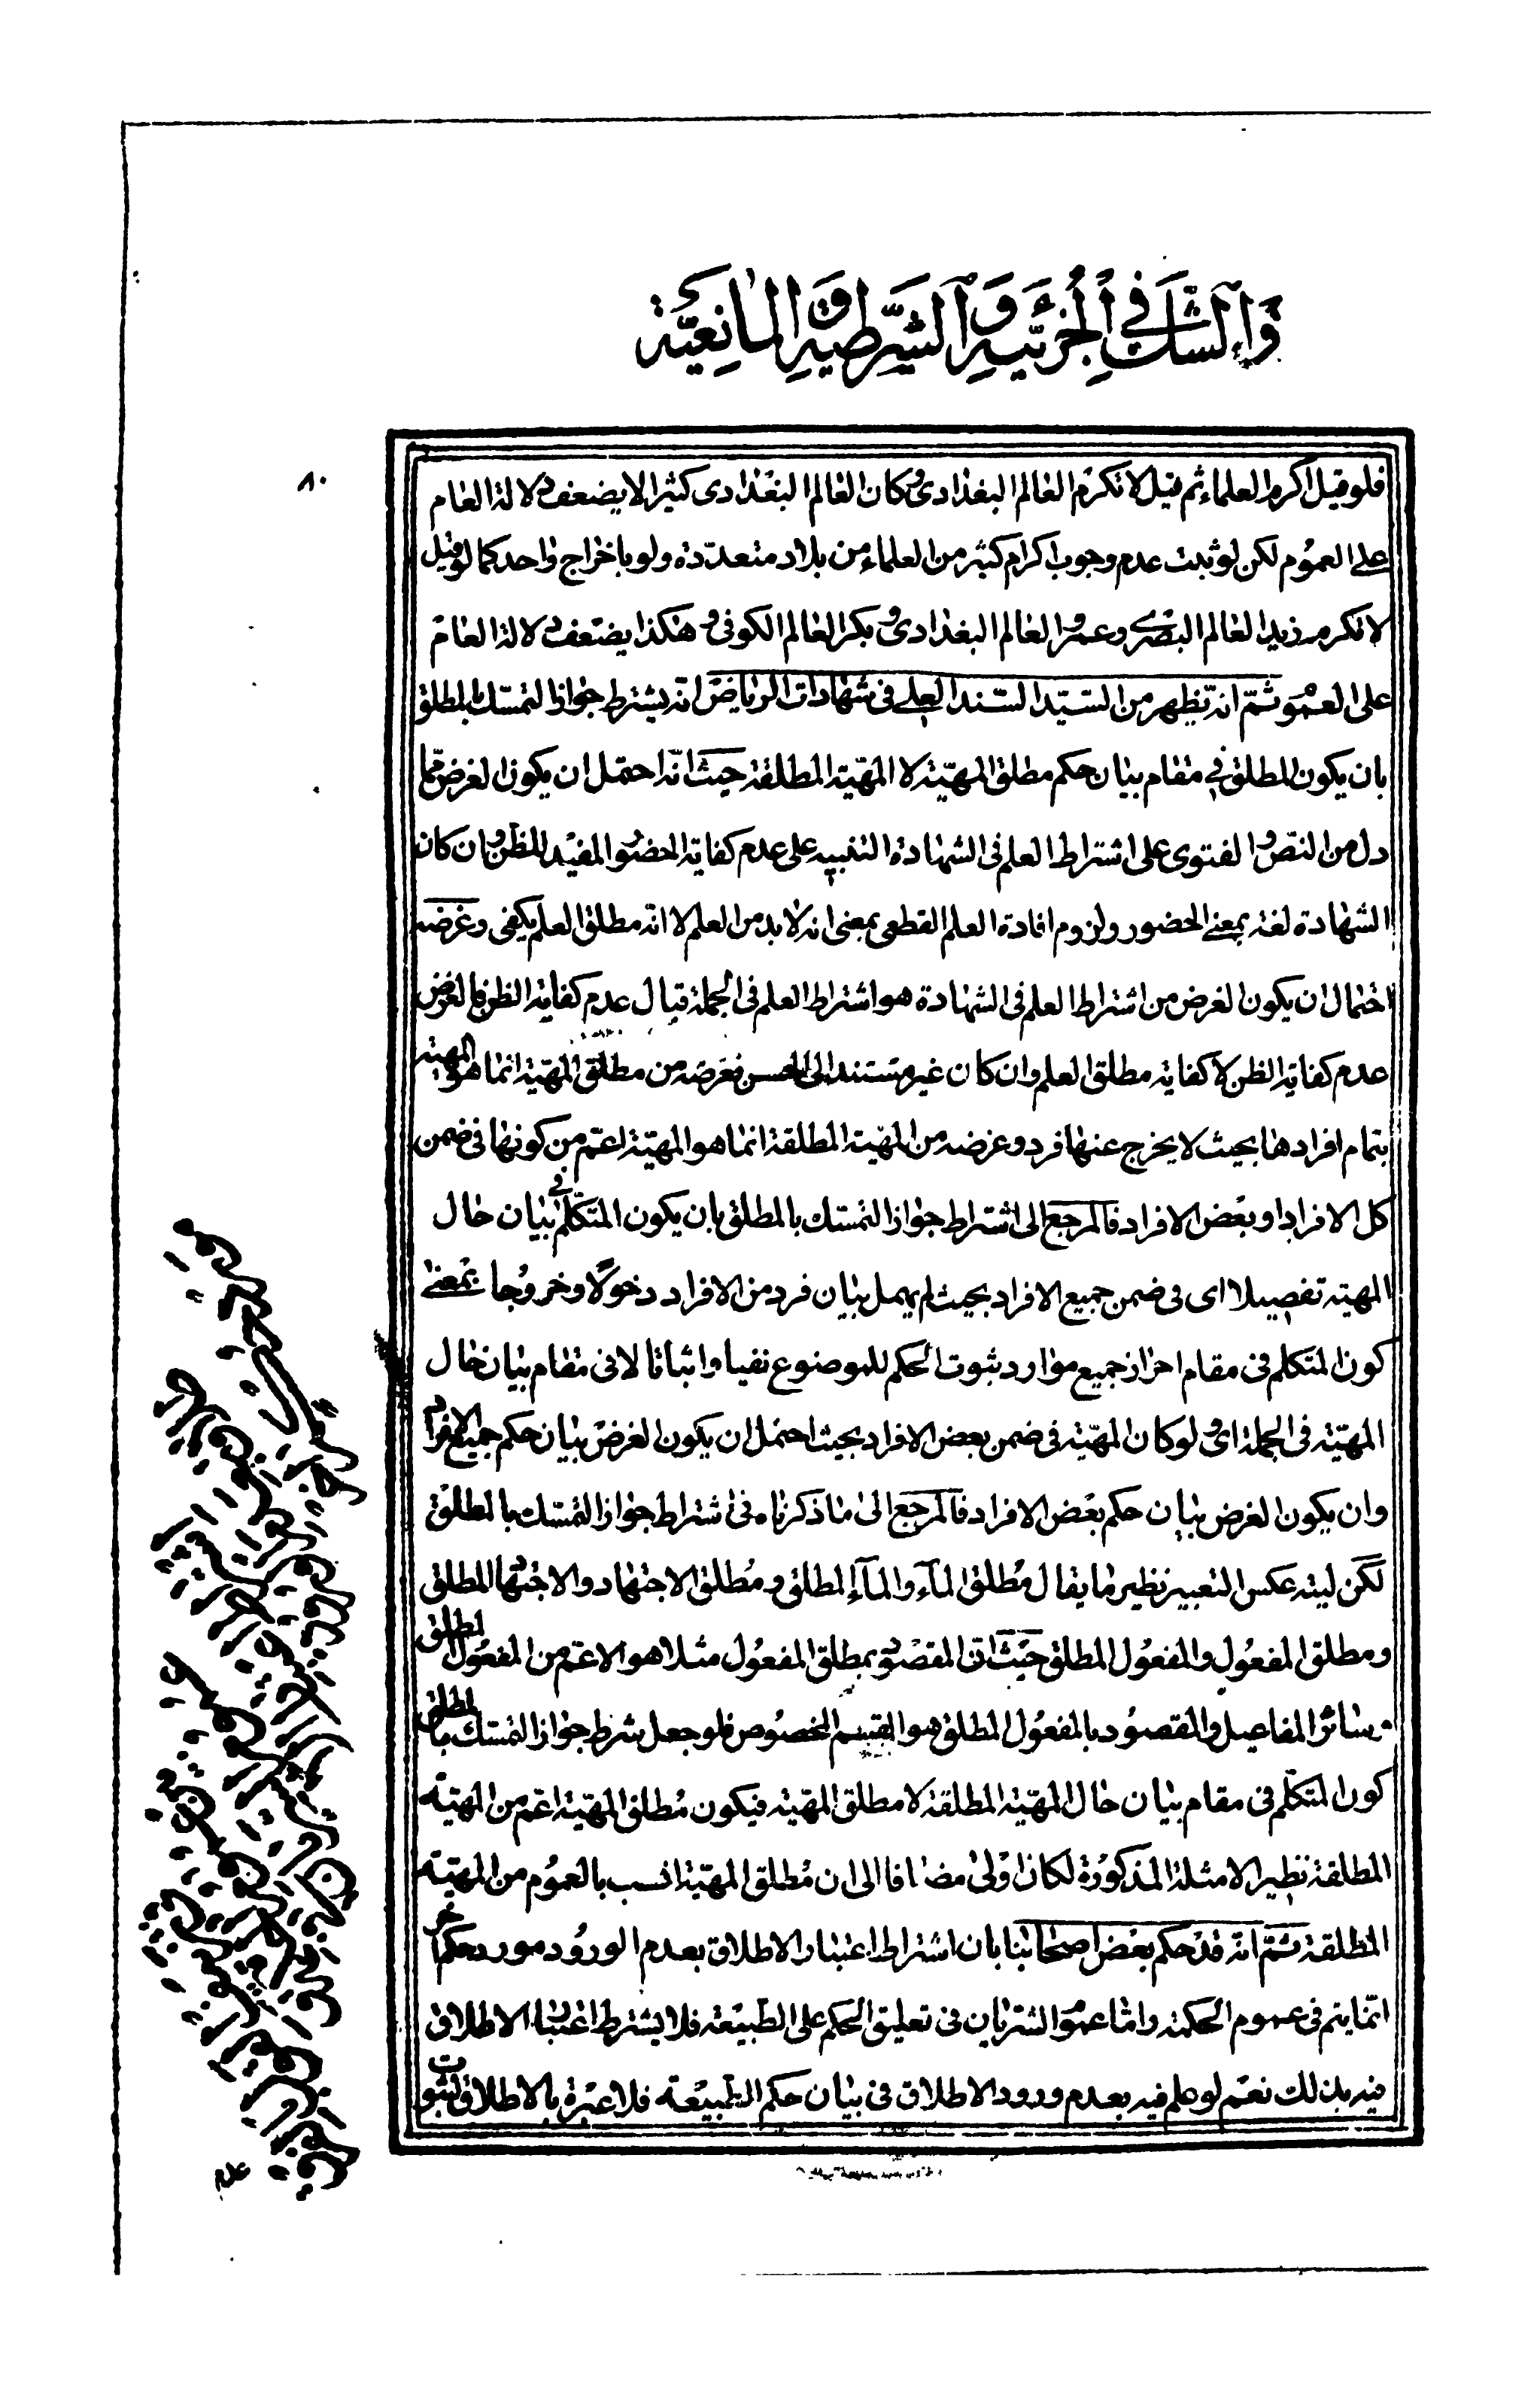 والشك في الجزئية والشرطية والمانعية
٨٠
فلو قيل اكرم العلماء ثم قيل لا تكرم العالم البغدادى وكان العالم البغدادى كثيرا لا يضعف دلالة العام
على العموم لكن لو ثبت عدم وجوب اكرام كثير من العلماء من بلاد متعددة ولو باخراج واحد كما لو قيل
لا تكرم زيدا العالم البصرى وعمرا العالم البغدادى وبكرا العالم الكوفى وهكذا يضعف دلالة العام
على العموم ثمّ انّه يظهر من السيّد السند العلى فى شهادات الرياض انّه يشترط جواز التمسك بالمطلق
بان يكون المطلق في مقام بيان حكم مطلق المهيّة لا المهيّة المطلقة حيث انّه احتمل ان يكون الغرض ممّا
دل من النصّ والفتوى على اشتراط العلم فى الشهادة التنبيه على عدم كفاية الحضور المفيد للظن وان كان
الشهادة لغة بمعنى الحضور ولزوم افادة العلم القطعى بمعنى انه لا بد من العلم لا انّه مطلق العلم يكفى وغرضه
احتمال ان يكون الغرض من اشتراط العلم فى الشهادة هو اشتراط العلم فى الجملة قبال عدم كفاية الظن فالغرض
عدم كفاية الظن لا كفاية مطلق العلم وان كان غير مستند الى الحس فغرضه من مطلق المهيّة انما هو المهية
بتمام افرادها بحيث لا يخرج عنها فرد وغرضه من المهيّة المطلقة انما هو المهيّة اعمّ من كونها فى ضمن
كل الافراد او بعض الافراد فالمرجع الى اشتراط جواز التمسك بالمطلق بان يكون المتكلّم فى بيان حال
المهيّة تفصيلا اى فى ضمن جميع الافراد بحيث لم يهمل بيان فرد من الافراد دخولا وخروجا بمعنى
كون المتكلم فى مقام احراز جميع موارد ثبوت الحكم للموضوع نفيا واثباتا لا فى مقام بيان حال
المهيّة فى الجملة اى ولو كان المهيّة فى ضمن بعض الافراد بحيث احتمل ان يكون الغرض بيان حكم جميع الافراد
وان يكون الغرض بيان حكم بعض الافراد فالمرجع الى ما ذكرناه فى اشتراط جواز التمسك بالمطلق
لكن ليته عكس التعبير نظير ما يقال مُطلق الماء والماء المطلق ومُطلق الاجتهاد والاجتهاد المطلق
ومطلق المفعُول والمفعُول المطلق حيث انّ المقصُود بمطلق المفعُول مثلا هو الاعمّ من المفعُول المطلق
وسائر المفاعيل والمقصُود بالمفعُول المطلق هو القسم المخصُوص فلو جعل شرط جواز التمسك بالمطلق
كون المتكلّم فى مقام بيان حال المهيّة المطلقة لا مطلق المهيّة فيكون مُطلق المهيّة اعمّ من المهيّة
المطلقة نظير الامثلة المذكورة لكان اولى مضافا الى ان مُطلق المهيّة انسب بالعمُوم من المهيّة
المطلقة ثمّ انّه قد حكم بعض اصحابنا بان اشتراط اعتبار الاطلاق بعدم الورُود مورد حكم اخر
انّما يتم فى عموم الحكمة وامّا عموم السّريان فى تعليق الحكم على الطبيعة فلا يشترط اعتبار الاطلاق
فيه بذلك نعم لو علم فيه بعدم ورود الاطلاق فى بيان حكم الطبيعة فلا عبرة بالاطلاق لثبوت